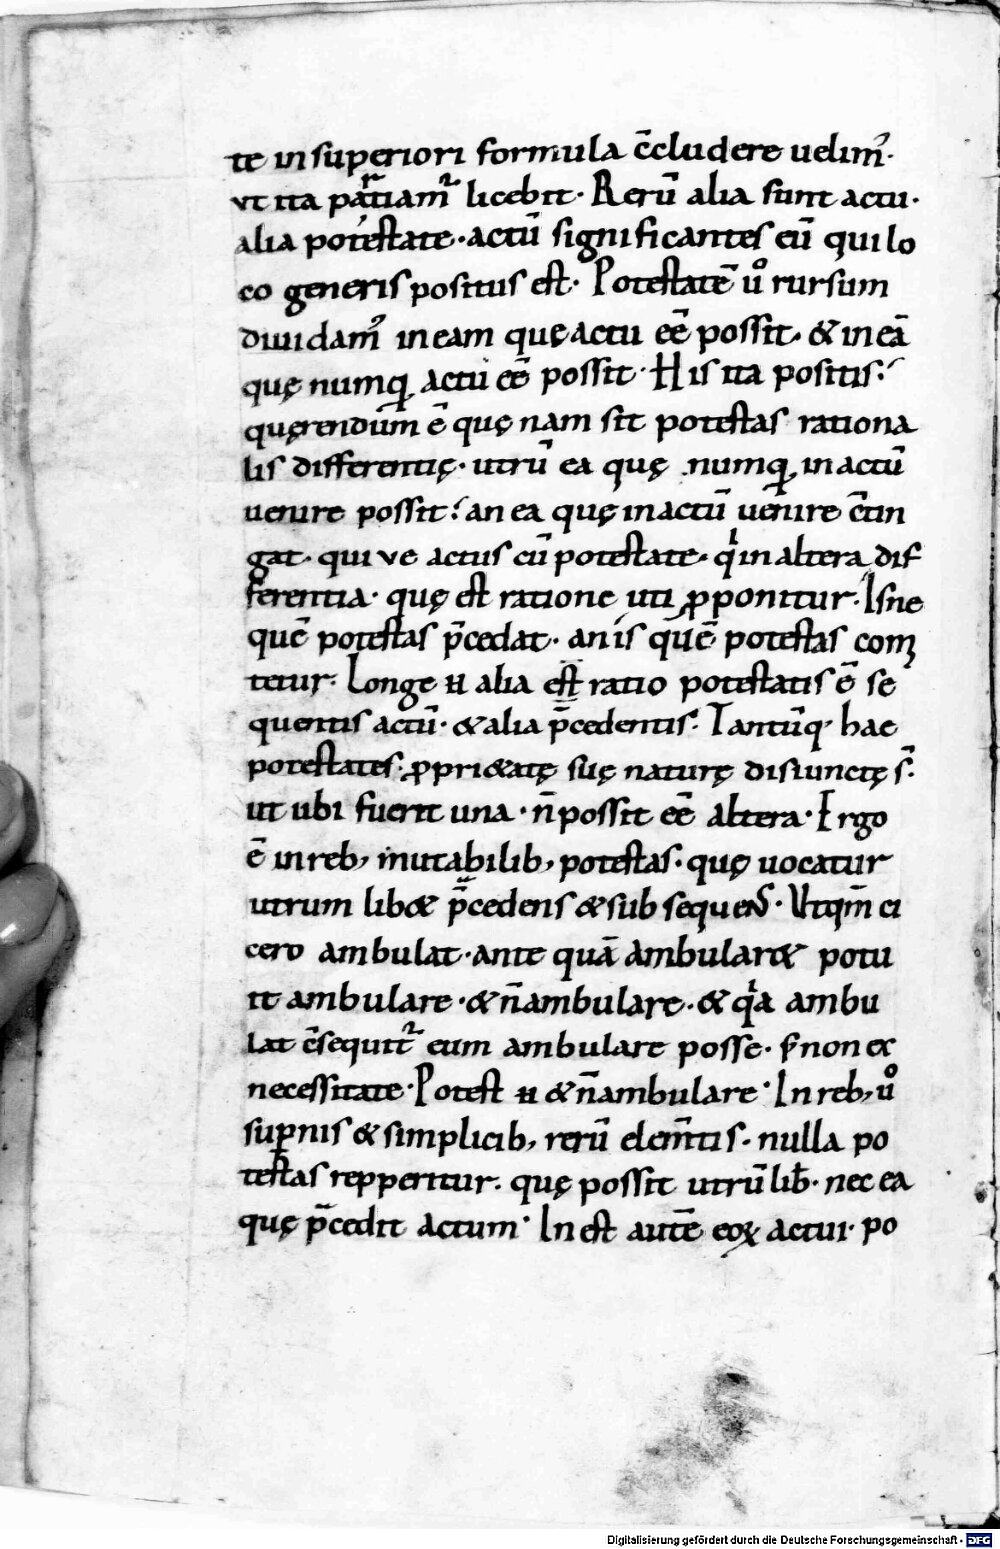 te in superiori formula c̄cludere uelim᾽.
vt ita partiam᾽ licebit. Rerū alia sunt actu.
alia potestate. actū significantes eū qui lo
co generis positus est. Potestatē uͦ rursum
diuidam᾽ in eam quę actu eē possit. & in eā
quę numq̄ actu eē possit. His ita positis.
quęrendūm ē quę nam sit potestas rationa
lis differentię. utrū ea quę numq̄ in actū
uenire possit? an ea quę in actū uenire c̄tin
gat. qui ve actus cū potestate. qͥ in altera dif
ferentia. quę est ratione uti ꝓponitur. Isne
quē potestas p̄cedat. an is quē potestas com
tetur. Longe n̄ alia est ratio potestatis ē se
quentis actū. & alia p̄cedentis. Tantūq. hae
potestates. ꝓpri&atę suę naturę disiunctę s̄.
ut ubi fuerit una. n̄ possit eē altera. Ergo
ē in reb; inmutabilib; potestas. quę uocatur
utrum lib& p̄cedens & sub sequens. Vtqm̄ ci
cero ambulat. ante quā ambular& potu
it ambulare. & n̄ ambulare. & qͥa ambu
lat c̄sequit᾽ eum ambulare posse. s̄ non ex
necessitate. Potest n̄ & n̄ ambulare. In reb; uͦ
sup̄nis & simplicib; rerū elem̄tis. nulla po
testas repperitur. quę possit utrū lib&. nec ea
quę p̄cedit actum. In est autē eoꝝ actui. po
Digitalisierung gefördert durch die Deutsche Forschungsgemeinschaft - DFG